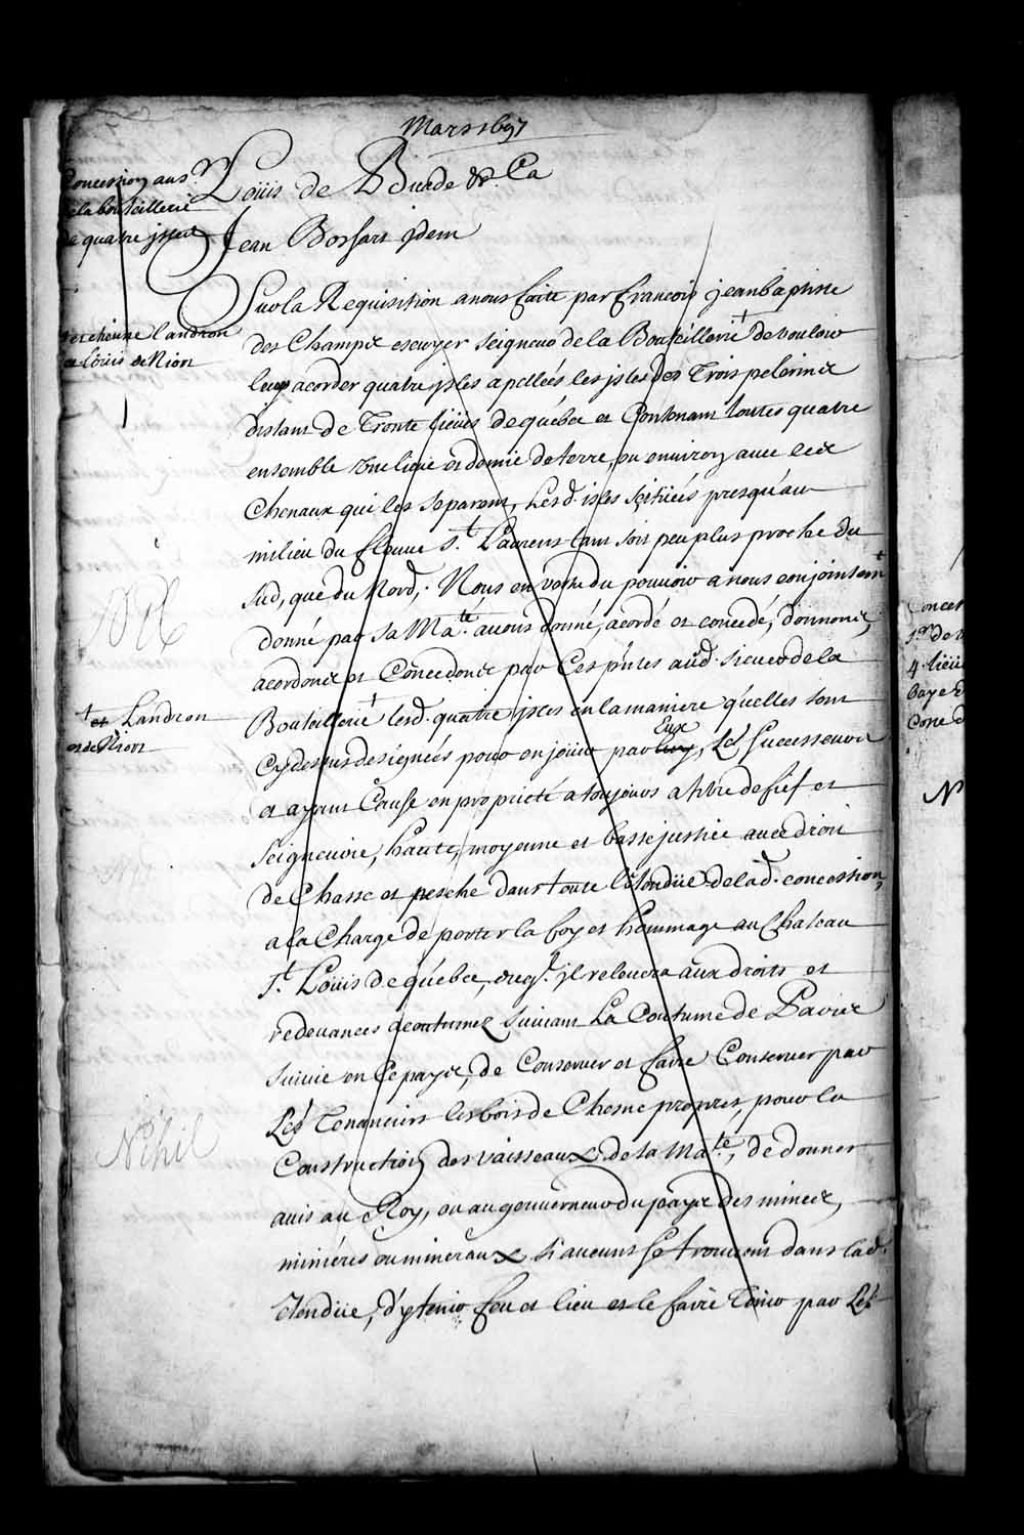 Mars 1697
Concession aus.r
de la bouteillerie
de quatre jsles
Loüis de Buade &.Ca
Jean Bochart jdem
Sur la Requisition a nous faite par francois jean baptiste
des Champs escuyer seigneur de la Bouteillerie † de vouloir
† et etienne landron
et Loüis de Niort
leur acorder quatre jsles apellées les jsles des Trois pelerins
distant de Trente lieües de québec et Contenant toutes quatre
ensemble une lieüe et demie de terre, ou environ avec les
Chenaux qui les separent, Lesd. isles scitüées presqu'au
milieu du fleuve s.t Laurens tant soit peu plus proche du
Sud, que du Nord,. Nous en vertu du pouvoir a nous conjointem.t
donné par sa Ma.té avons donné, acordé et concedé, donnons,
acordons et Concedons par Ces p'ntes aud. sieur de la
Bouteillerie † lesd. quatre jsles en la maniere quelles sont
† et Landron
et de Niort
Cy dessus designées pour en joüir par luy, Eux Les Successeurs
et ayans Cause en proprieté a toujours a titre de fief et
Seigneurie, haute, moyenne et basse justice avec droit
de Chasse et pesche dans toute l'Etendüe de lad. concession,
a la Charge de porter la foy et hommage au Chateau
S.t Loüis de québec, duq.l jl relevera aux droits et
redevances acoutumez suivant La Coutume de Paris
suivie en Ce pays, de Conserver et faire Conserver par
Les Tenanciers les bois de Chesne propres, pour la
Construction des vaisseaux de sa Ma.té, de donner
Nihil
avis au Roy, ou au gouverneur du pays des mines,
minieres ou mineraux si aucuns se trouvent dans lad.
Etendüe, d'y tenir feu et lieu et le faire tenir par Les